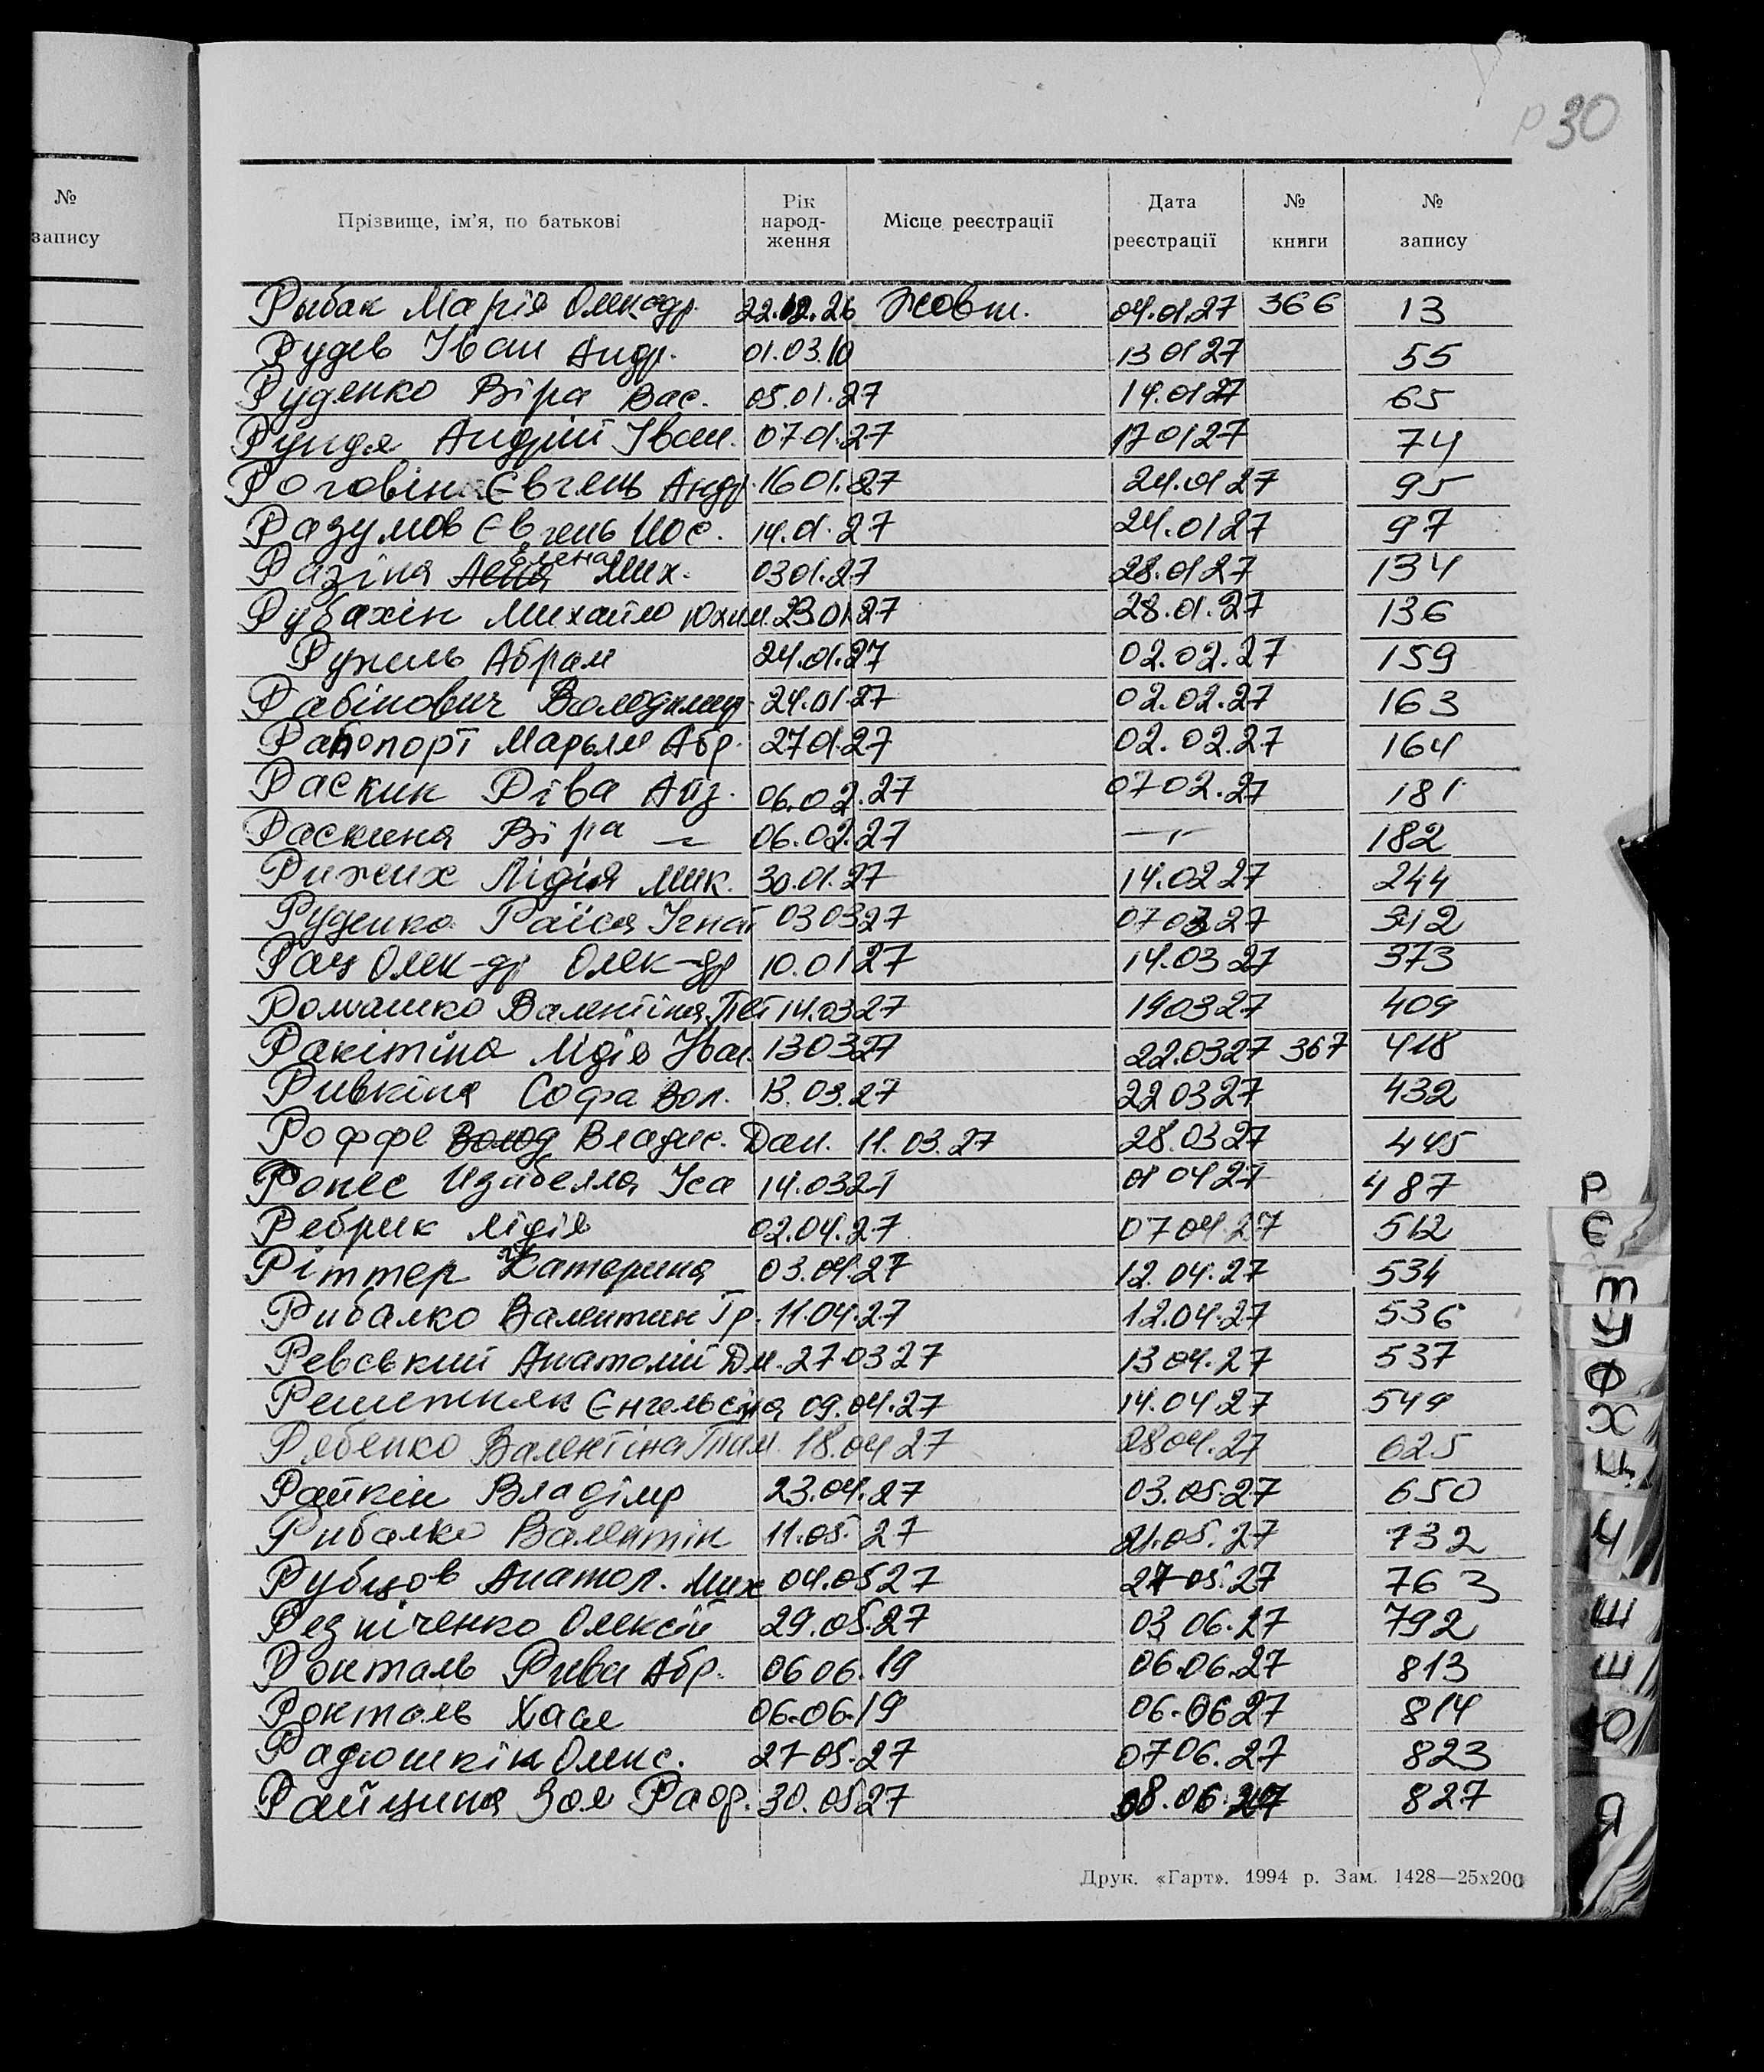 Р 30
№
запису
Прізвище, ім'я, по батькові Рік народження Місце реєстрації Дата реєстрації № книги № запису
Рыбак Марія Олександр. 22.12.26 Жовт. 04.01.27 366 13
Рудев Іван Андр. 01.03.10 13 01 27 55
Руденко Віра Вас. 05.01.27 14.01 27 65
Рундя Андрій Іван. 07 01.27 17 01 27 74
Роговін Євгень Андр. 16 01.27 24.01 27 95
Разумов Євгень Иос. 14.01.27 24.01 27 97
Разіна Елена Мих. 03 01.27 28.01 27 134
Рубахін Михайло Юхим. 23.01.27 28.01.27 136
Ружель Абрам 24.01.27 02.02.27 159
Рабінович Володимир 24.01.27 02.02.27 163
Рапопорт Марьям Абр. 27 01.27 02.02.27 164
Раскин Ріва Айз. 06.02.27 07 02.27 181
Раскина Віра –〃– 06.02.27 –〃– 182
Рижих Лідія Мик. 30.01.27 14.02 27 244
Руденко Раїса Ігнат 03 03 27 07 03 27 312
Рац Олек-др Олек-др 10.01 27 14.03 27 373
Ромашко Валентіна Пет 14.03 27 19 03 27 409
Ракітіна Лідія Іван. 13 03 27 22.03 27 367 418
Ривкіна Софа Вол. 13.03.27 22 03 27 432
Роффе Волод Владис. Дан. 11.03.27 28.03 27 445
Ропес Изабелла Іса 14.03 27 01 04 27 487
Ребрик Лідія 02.04.27 07 04.27 512
Ріттер Катерина 03.04.27 12.04.27 534
Рибалко Валентин Гр. 11.04.27 12.04.27 536
Ревський Анатолій Дм. 27 03 27 13 04.27 537
Решетняк Єнгельсіна 09.04.27 14.04 27 549
Рябенко Валентіна Тим. 18.04 27 28 04.27 625
Райкін Владімр 23.04.27 03.05.27 650
Рибалко Валентін 11.05.27 21.05.27 732
Рубцов Анатол. Мих 04.05 27 27 05.27 763
Резніченко Олексій 29.05.27 03 06.27 792
Рокталь Рива Абр. 06 06.19 06.06.27 813
Рокталь Хаая 06.06.19 06.06 27 814
Радюшкін Олекс. 27 05.27 07 06.27 823
Райцина Зоя Раф. 30.05 27 08.06.27 827
Друк. «Гарт». 1994 р. Зам. 1428—25х200
Р
Є
Т
У
Ф
Х
Ц
Ч
Ш
Е
Ю
Я